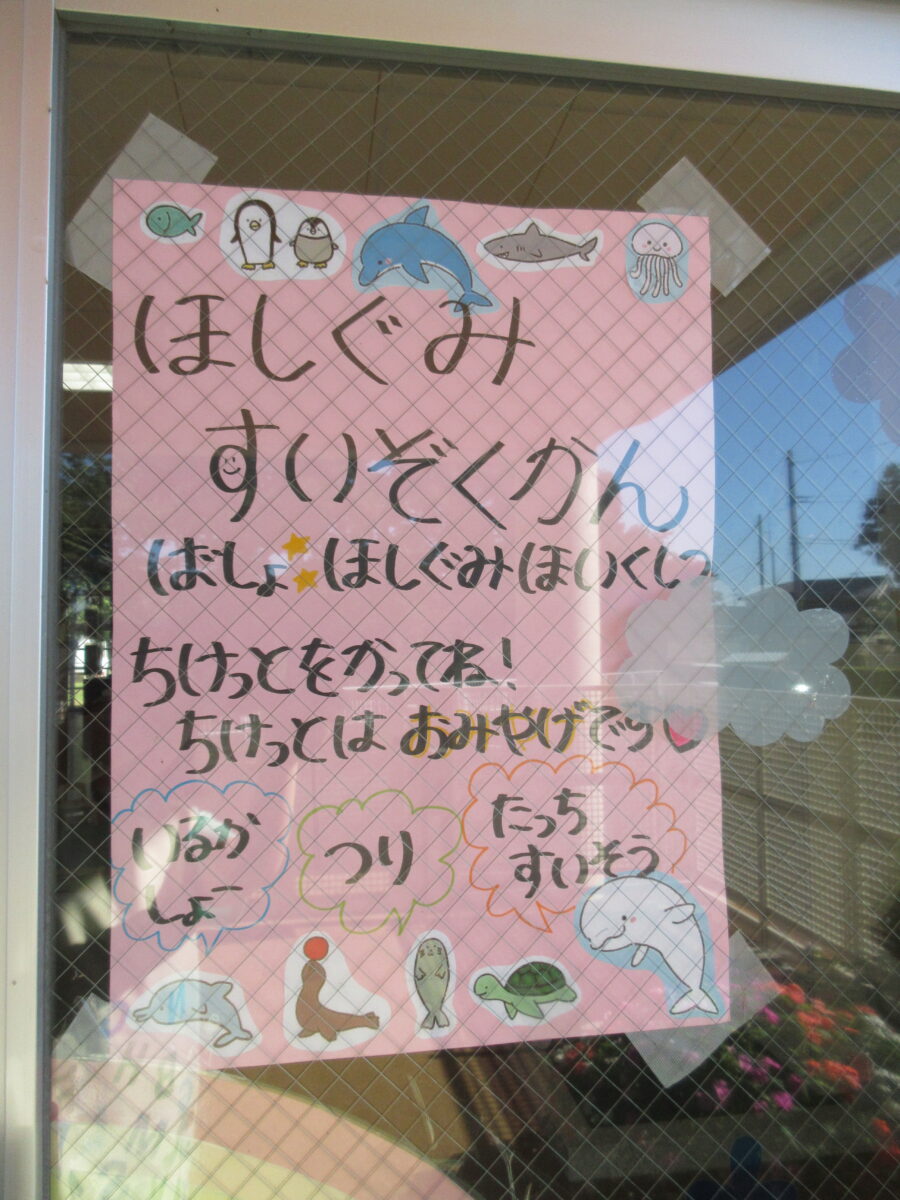 ほしぐみ
すいぞくかん
ばしょ ほしぐみほいくしつ
ちけっとをかってね!
ちけっとは おみやげです
いるか
しょー
つり
たっち
すいそう